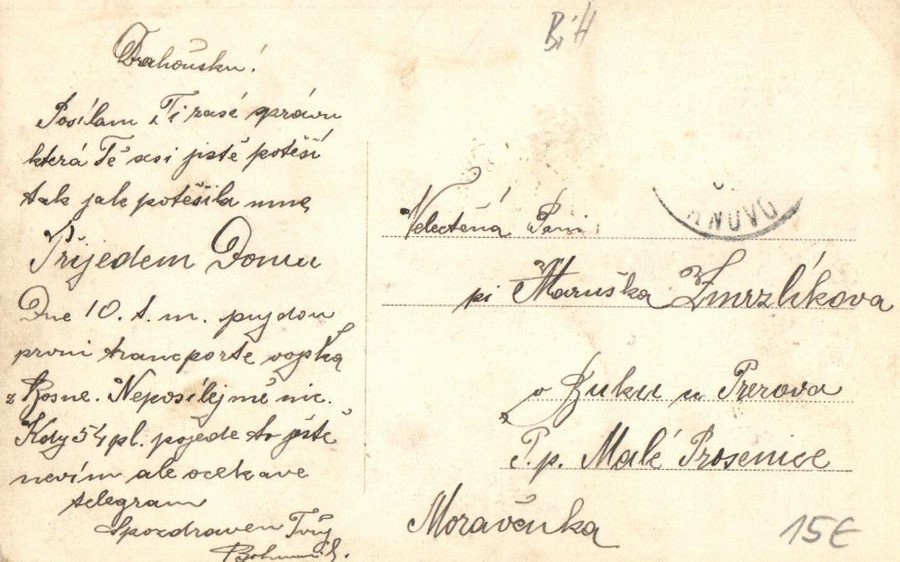 BiH
Drahoušku!
Posílam Ti zasé zprávu
která Tě asi jistě potěší
tak jak potěšila mně
Přijedem Domu
Dne 10. t. m. pujdou
první transporte vojska
z Bosne. Neposílej mě nic.
Kdy 54 pl. pojede to jistě
nevím ale ocekave
telegram
Spozdraven Tvůj
Velectěná Pani
pi Maruška Zmrzlíkova
v Buku u Prerova
P. p. Malé Prosenice
Moravěnka
15€